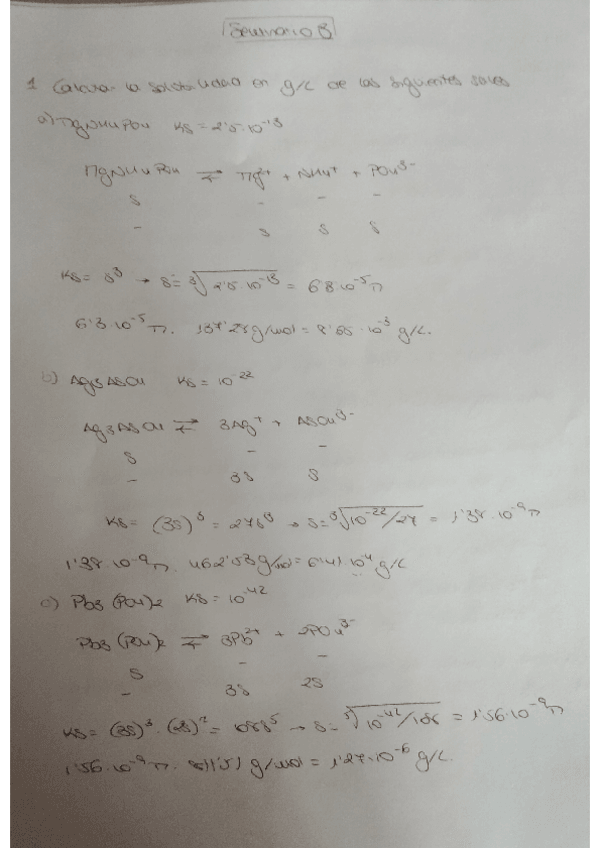 Seminario 3
1 Calcular la solubilidad en g/L de las siguientes sales
a) MgNH4PO4 KS = 2'5·10⁻¹³
MgNH4PO4 ⇄ Mg²⁺ + NH4⁺ + PO4³⁻
S - - -
- S S S
KS = S³ → S = ³√2'5·10⁻¹³ = 6'3·10⁻⁵ M
6'3·10⁻⁵ M · 137'25 g/mol = 8'65·10⁻³ g/L.
b) Ag3AsO4 KS = 10⁻²²
Ag3AsO4 ⇄ 3Ag⁺ + AsO4³⁻
S - -
- 3S S
KS = (3S)³ = 27S³ → S = ³√10⁻²²/27 = 1'38·10⁻⁹ M
1'38·10⁻⁹ M · 462'53 g/mol = 6'41·10⁻⁴ g/L
c) Pb3(PO4)2 KS = 10⁻⁴²
Pb3(PO4)2 ⇄ 3Pb²⁺ + 2PO4³⁻
S - -
- 3S 2S
KS = (3S)³·(2S)² = 108S⁵ → S = ⁵√10⁻⁴²/108 = 1'56·10⁻⁹ M
1'56·10⁻⁹ M · g/mol = 1'27·10⁻⁶ g/L.